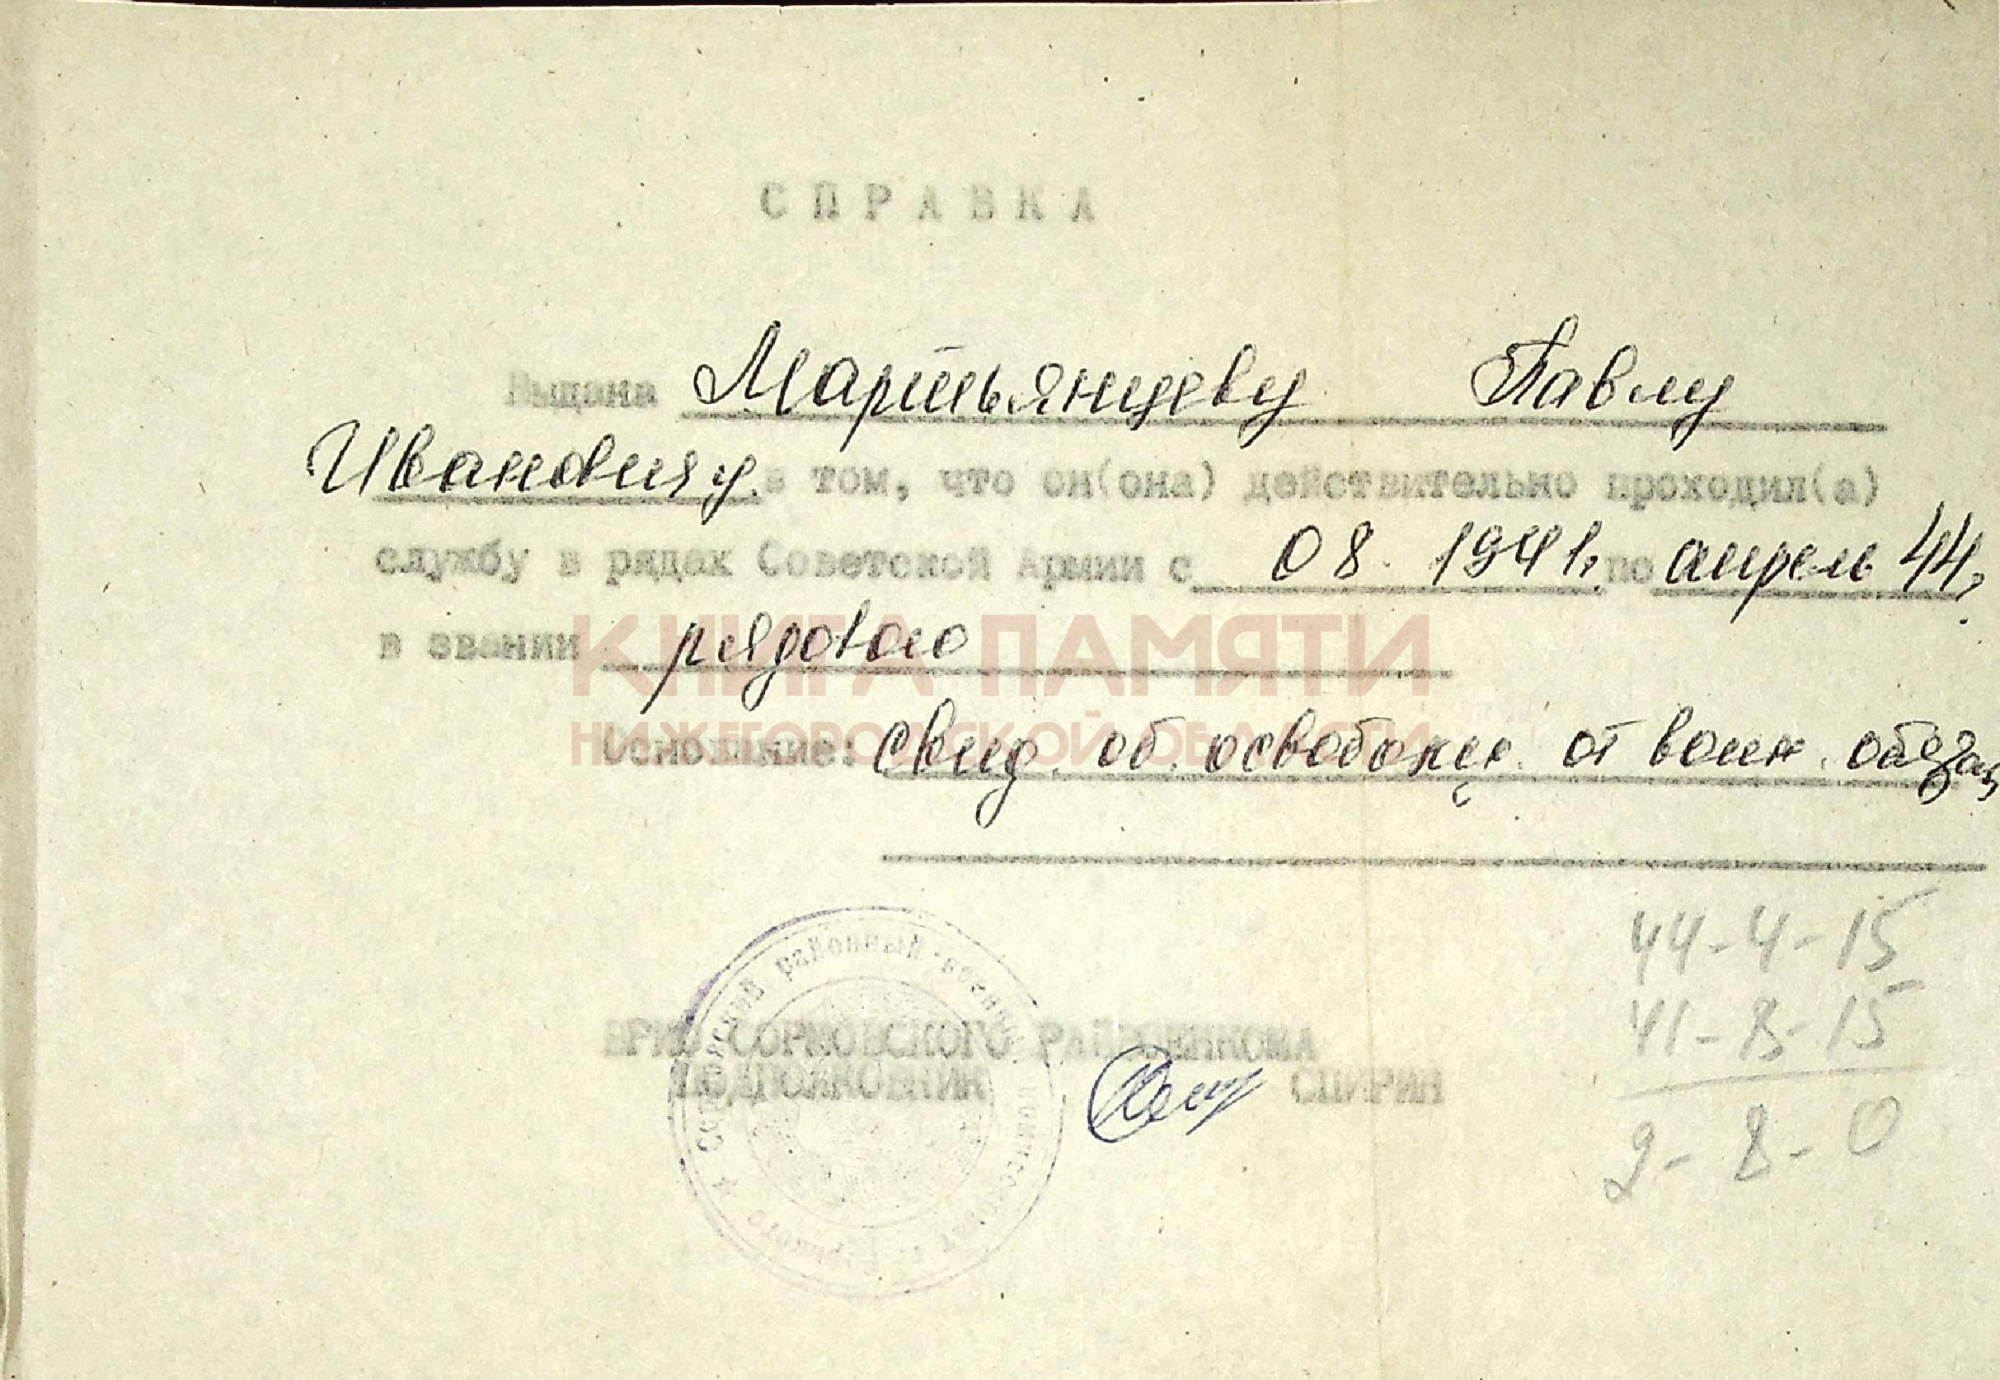 СПРАВКА
Выдана Мартьянцеву Павлу
Ивановичу в том, что он(она) действительно проходил(а)
службу в рядах Советской Армии с 08. 1941г. по апрель 44г.
в звании рядового
КНИГА ПАМЯТИ
НИЖЕГОРОДСКОЙ ОБЛАСТИ
Основание: Свид. об освобожд. от воин. обязан
44-4-15
41-8-15
2-8-0
ВРИО СОРМОВСКОГО РАЙВОЕНКОМА
ПОДПОЛКОВНИК СПИРИН
Сормовский районный военный комиссариат г. Горького